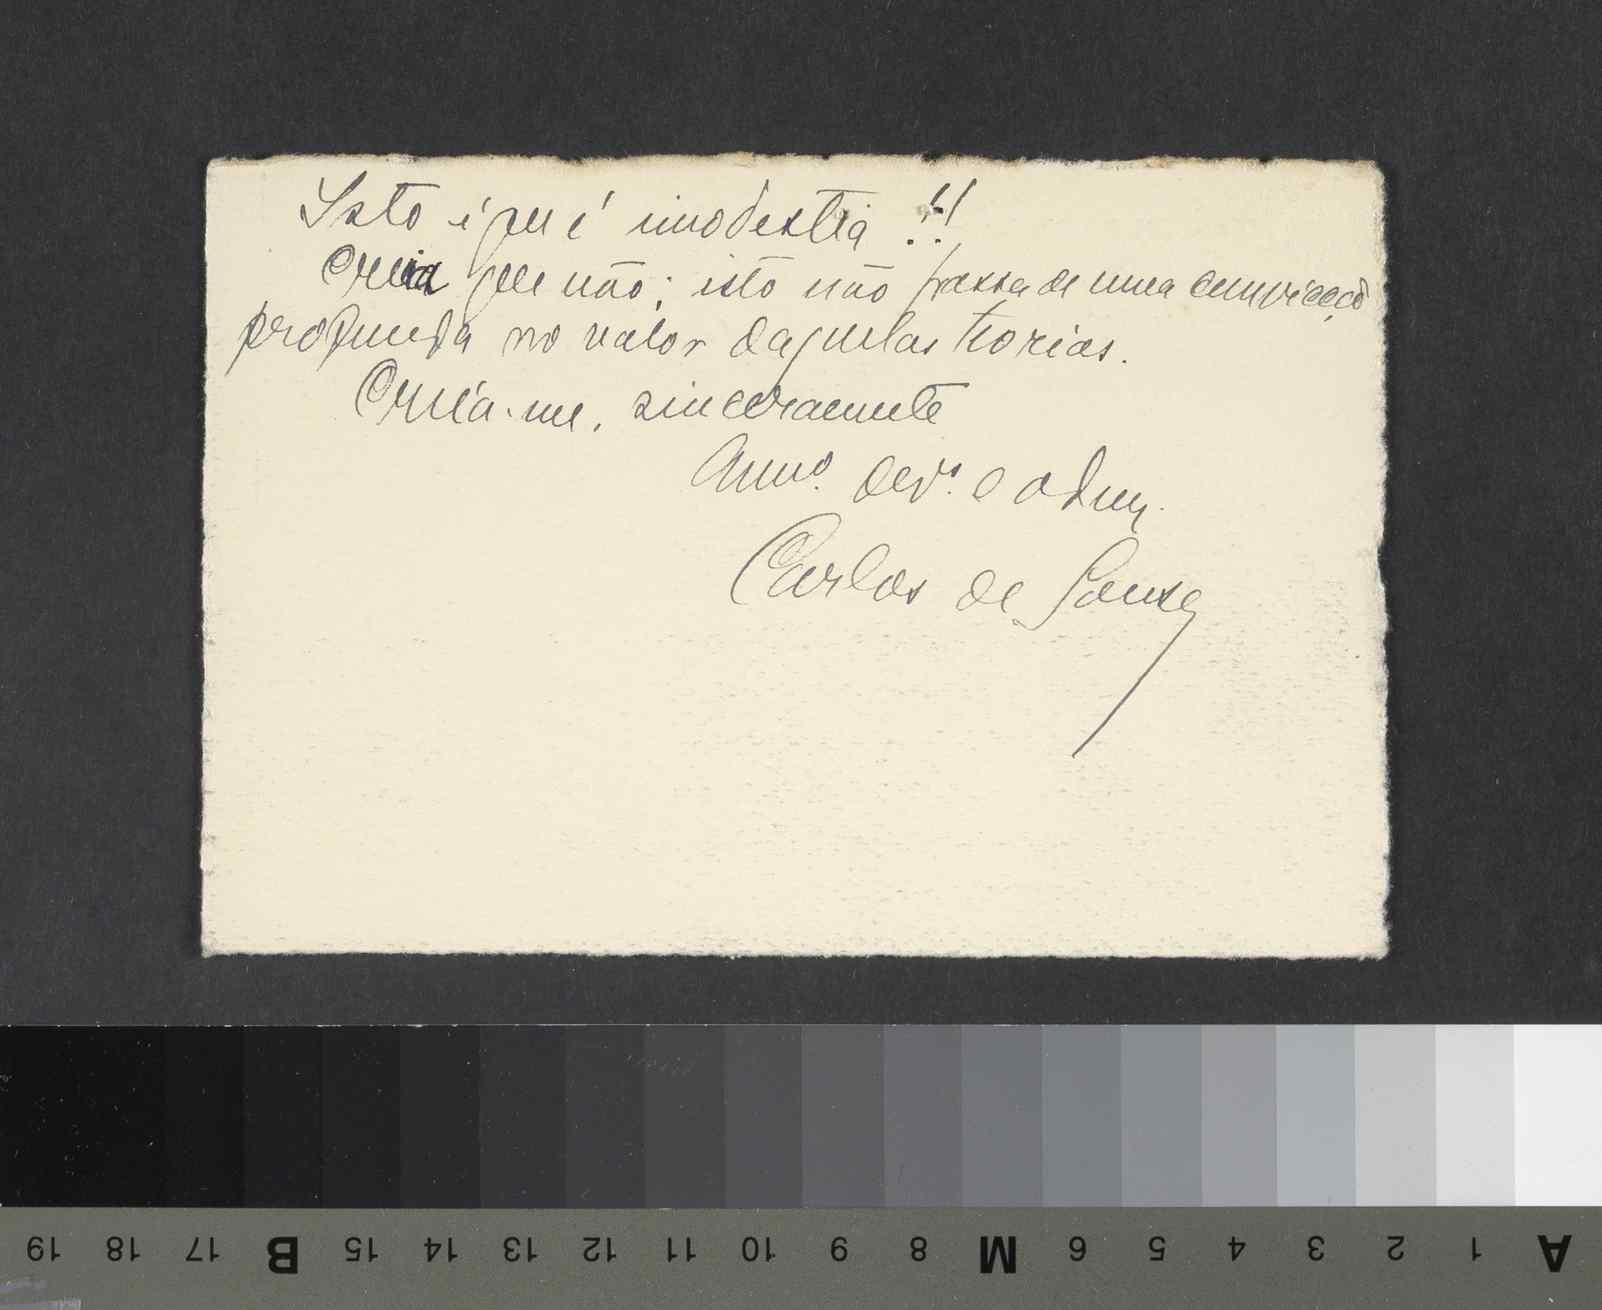 Isto é que é imodestia!!
Creia que não; isto não passa de uma convicção
profunda no valor daquelas teorias.
Creia-me, sinceramente
Ammo. devo. e adm.
Carlos de Souza
19 18 17 B 15 14 13 12 11 10 9 8 M 6 5 4 3 2 1 A